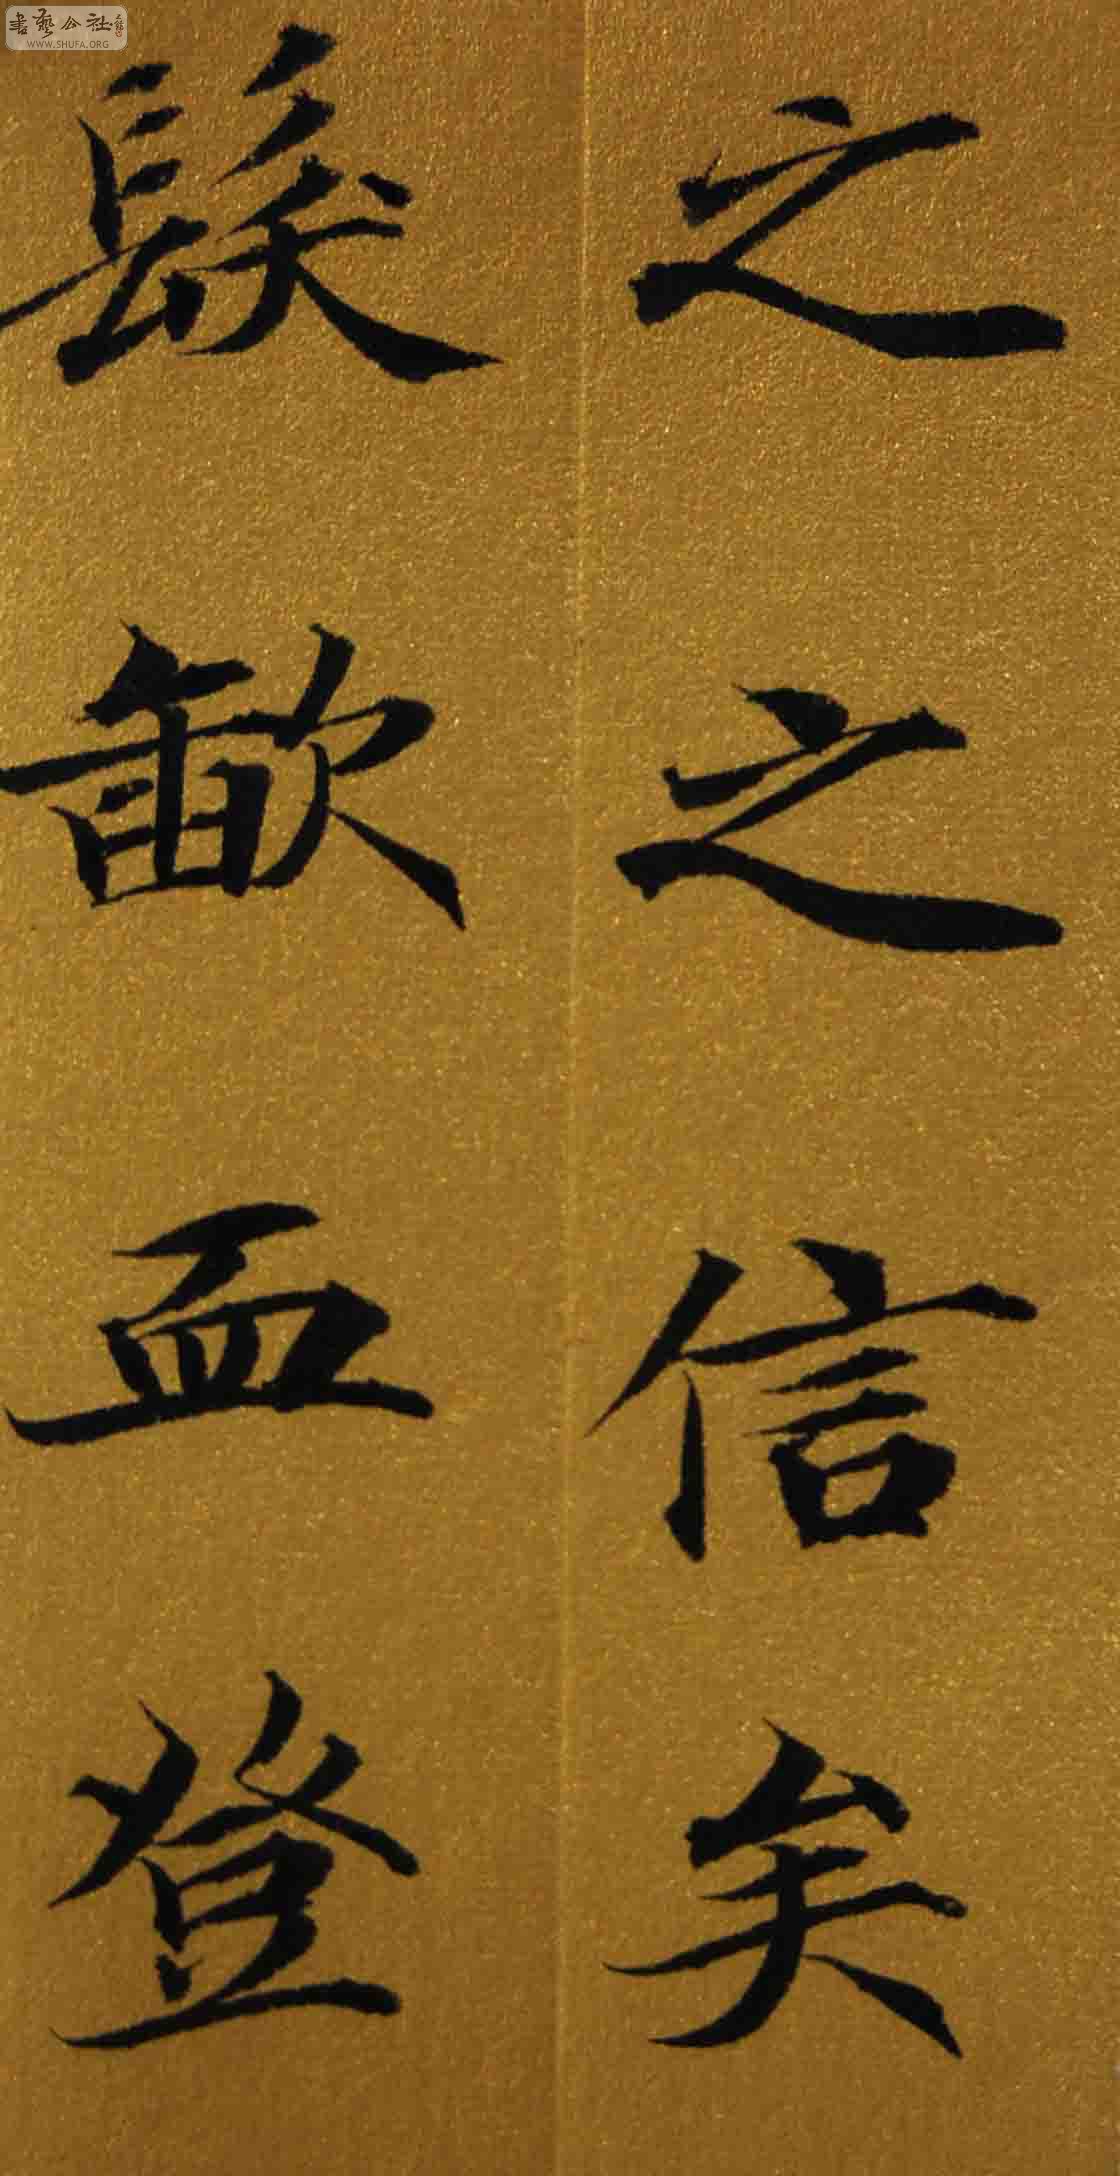 書藝公社
WWW.SHUFA.ORG
之之信矣
髮歃血登